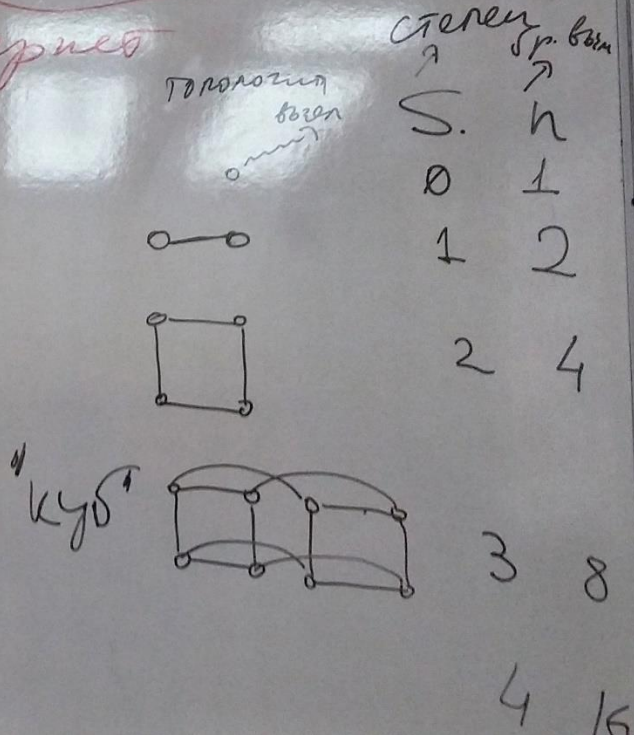 степен
топология
S. n
0 1
1 2
2 4
"куб"
3 8
4 16